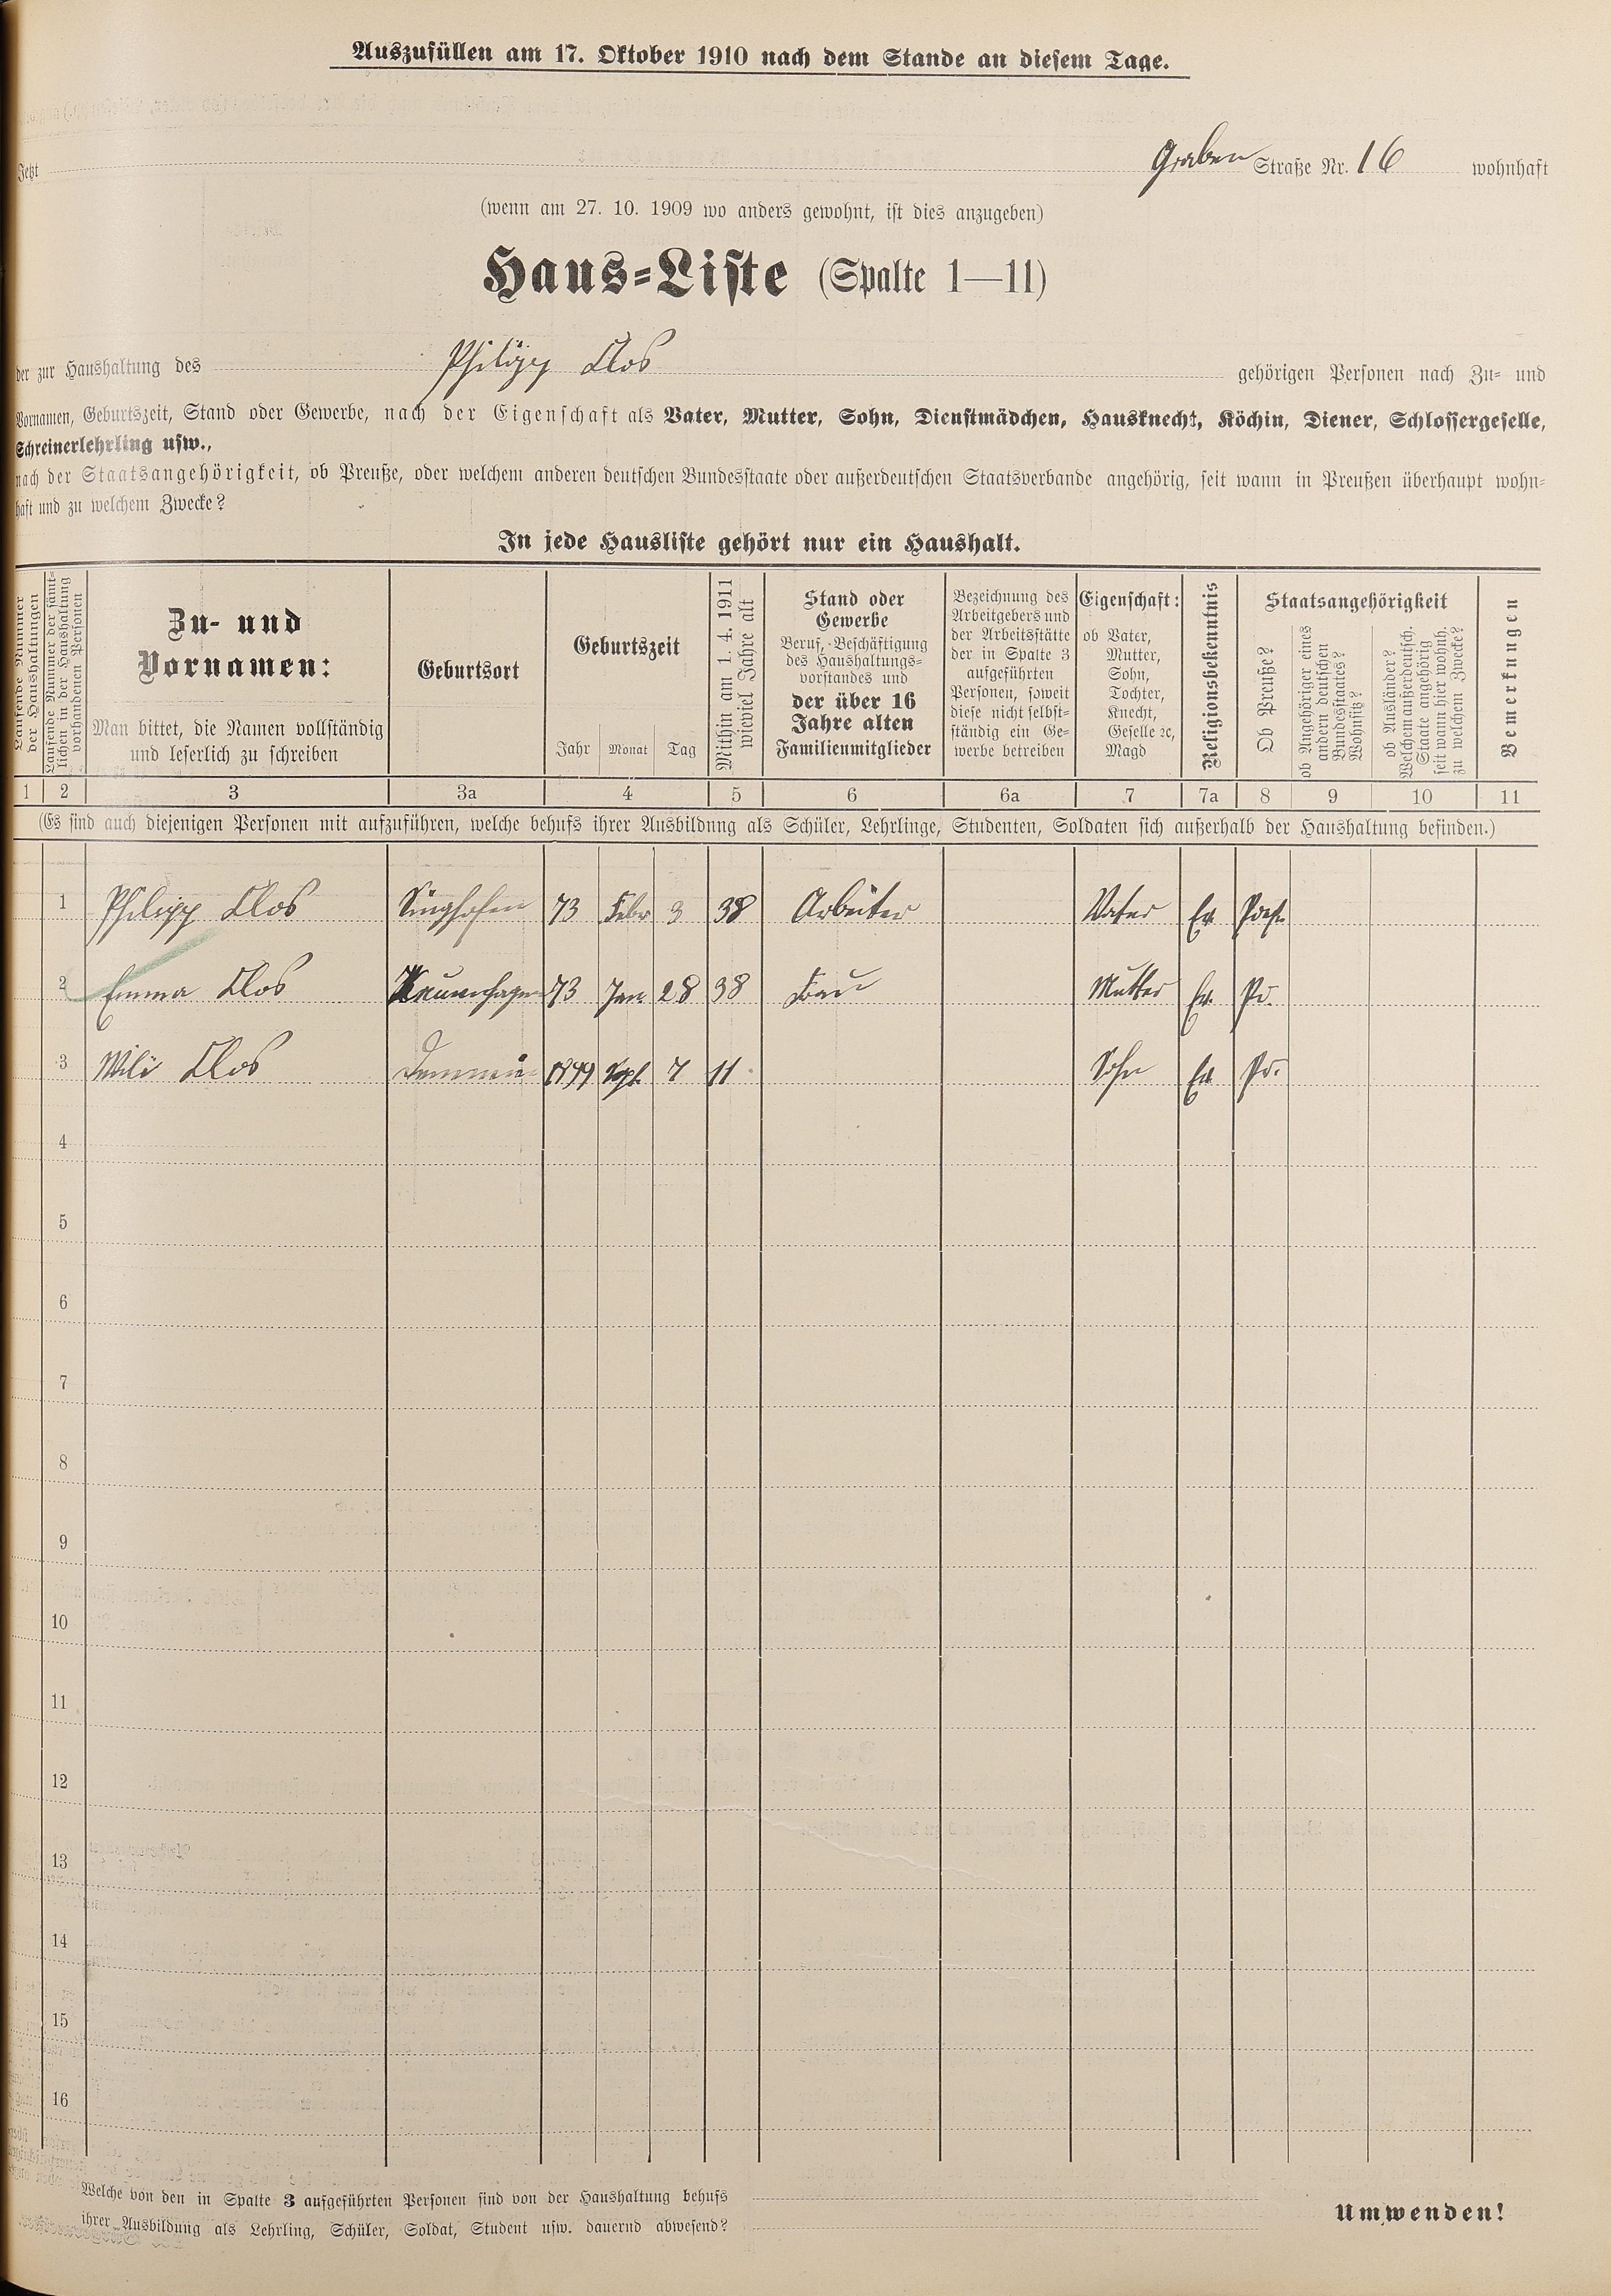 Auszufüllen am 17. Oktober 1910 nach dem Stande an diesem Tage.
Jetzt Graben Straße Nr. 16 wohnhaft
(wenn am 27. 10. 1909 wo anders gewohnt, ist dies anzugeben)
Haus-Liste (Spalte 1—11)
der zur Haushaltung des Philipp Clos gehörigen Personen nach Zu- und
Vornamen, Geburtszeit, Stand oder Gewerbe, nach der Eigenschaft als Vater, Mutter, Sohn, Dienstmädchen, Hausknecht, Köchin, Diener, Schlossergeselle,
Schreinerlehrling usw.,
nach der Staatsangehörigkeit, ob Preuße, oder welchem anderen deutschen Bundesstaate oder außerdeutschen Staatsverbande angehörig, seit wann in Preußen überhaupt wohn-
haft und zu welchem Zwecke?
In jede Hausliste gehört nur ein Haushalt.
Laufende Nummer
der Haushaltungen
Laufende Nummer der sämt-
lichen in der Haushaltung
vorhandenen Personen
Zu- und
Vornamen:
Man bittet, die Namen vollständig
und leserlich zu schreiben
Geburtsort
Geburtszeit
Jahr Monat Tag
Mithin am 1. 4. 1911
wieviel Jahre alt
Stand oder
Gewerbe
Beruf, Beschäftigung
des Haushaltungs-
vorstandes und
der über 16
Jahre alten
Familienmitglieder
Bezeichnung des
Arbeitgebers und
der Arbeitsstätte
der in Spalte 3
aufgeführten
Personen, soweit
diese nicht selbst-
ständig ein Ge-
werbe betreiben
Eigenschaft:
ob Vater,
Mutter,
Sohn,
Tochter,
Knecht,
Geselle ꝛc,
Magd
Religionsbekenntnis
Staatsangehörigkeit
Ob Preuße?
ob Angehöriger eines
andern deutschen
Bundesstaates?
Wohnsitz?
ob Ausländer?
Welchem außerdeutsch.
Staate angehörig
seit wann hier wohnh.
zu welchem Zwecke?
Bemerkungen
1 2 3 3a 4 5 6 6a 7 7a 8 9 10 11
(Es sind auch diejenigen Personen mit aufzuführen, welche behufs ihrer Ausbildung als Schüler, Lehrlinge, Studenten, Soldaten sich außerhalb der Haushaltung befinden.)
1 Philipp Clos Singhofen 73 Febr 3 38 Arbeiter Vater Ev. Preß.
2 Emma Clos 73 Jan 28 38 Frau Mutter Ev. Pr.
3 Wili Clos 1899 Sept. 7 11 Sohn Ev Pr.
4
5
6
7
8
9
10
11
12
13
14
15
16
Welche von den in Spalte 3 aufgeführten Personen sind von der Haushaltung behufs
ihrer Ausbildung als Lehrling, Schüler, Soldat, Student usw. dauernd abwesend?
Umwenden!